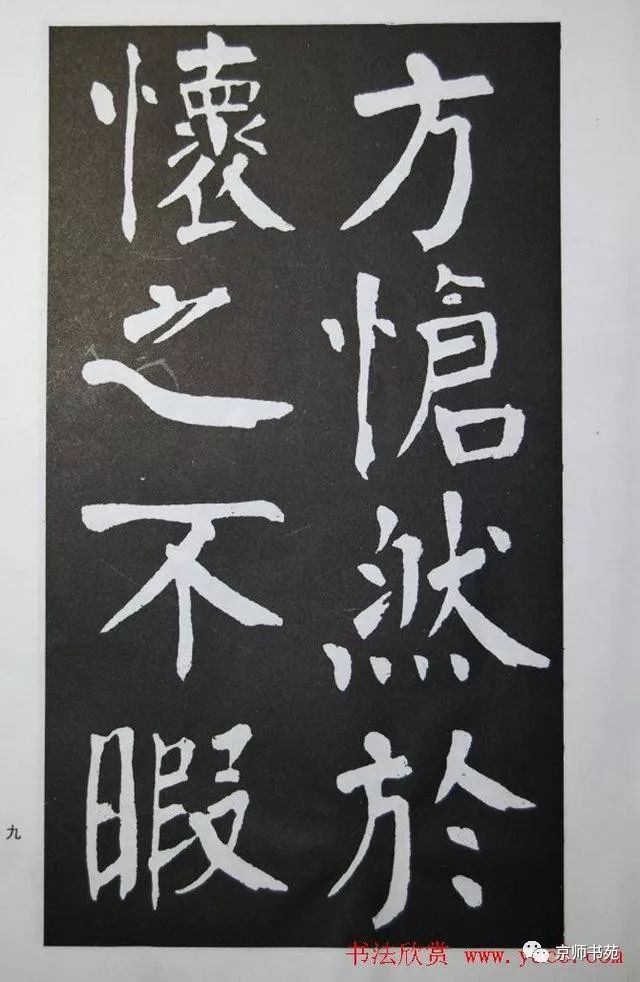 方愴然於
懷之不暇
九
书法欣赏
京师书苑